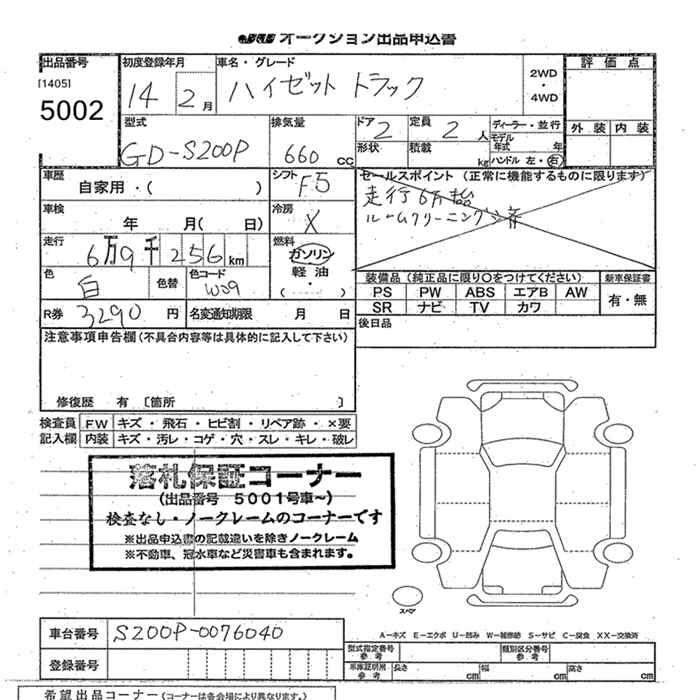 オークション出品申込書
出品番号
[1405]
5002
初度登録年月
14 2月
車名・グレード
ハイゼット トラック
2WD
・
4WD
評価点
外装 内装
型式
GD-S200P
排気量
660 cc
ドア 2
定員 2 人
形状
積載 kg
ディーラー・並行
モデル
年式 年
ハンドル 左・右
車歴
自家用・( )
シフト F5
セールスポイント (正常に機能するものに限ります)
走行6万台
ルームクリーニング済
車検
年 月( 日)
冷房 X
走行
6万9千256km
燃料
ガソリン
軽油
( ・ )
色
白
色替
色コード
W09
装備品 (純正品に限り○をつけてください)
PS PW ABS エアB AW
SR ナビ TV カワ
新車保証書
有・無
R券 3290 円
名変通知期限 月 日
後日品
注意事項申告欄(不具合内容等は具体的に記入して下さい)
修復歴 有 〔箇所 〕
検査員
記入欄
FW キズ・飛石・ヒビ割・リペア跡・×要
内装 キズ・汚レ・コゲ・穴・スレ・キレ・破レ
落札保証コーナー
(出品番号 5001号車~)
検査なし・ノークレームのコーナーです
※出品申込書の記載違いを除きノークレーム
※不動車、冠水車など災害車も含まれます。
スペア
A-キズ E-エクボ U-凹み W-補修跡 S-サビ C-腐食 XX-交換済
車台番号 S200P-0076040
登録番号
型式指定番号
参考
類別区分番号
参考
車庫証明用
参考
長さ cm
幅 cm
高さ cm
希望出品コーナー(コーナーは各会場により異なります。)